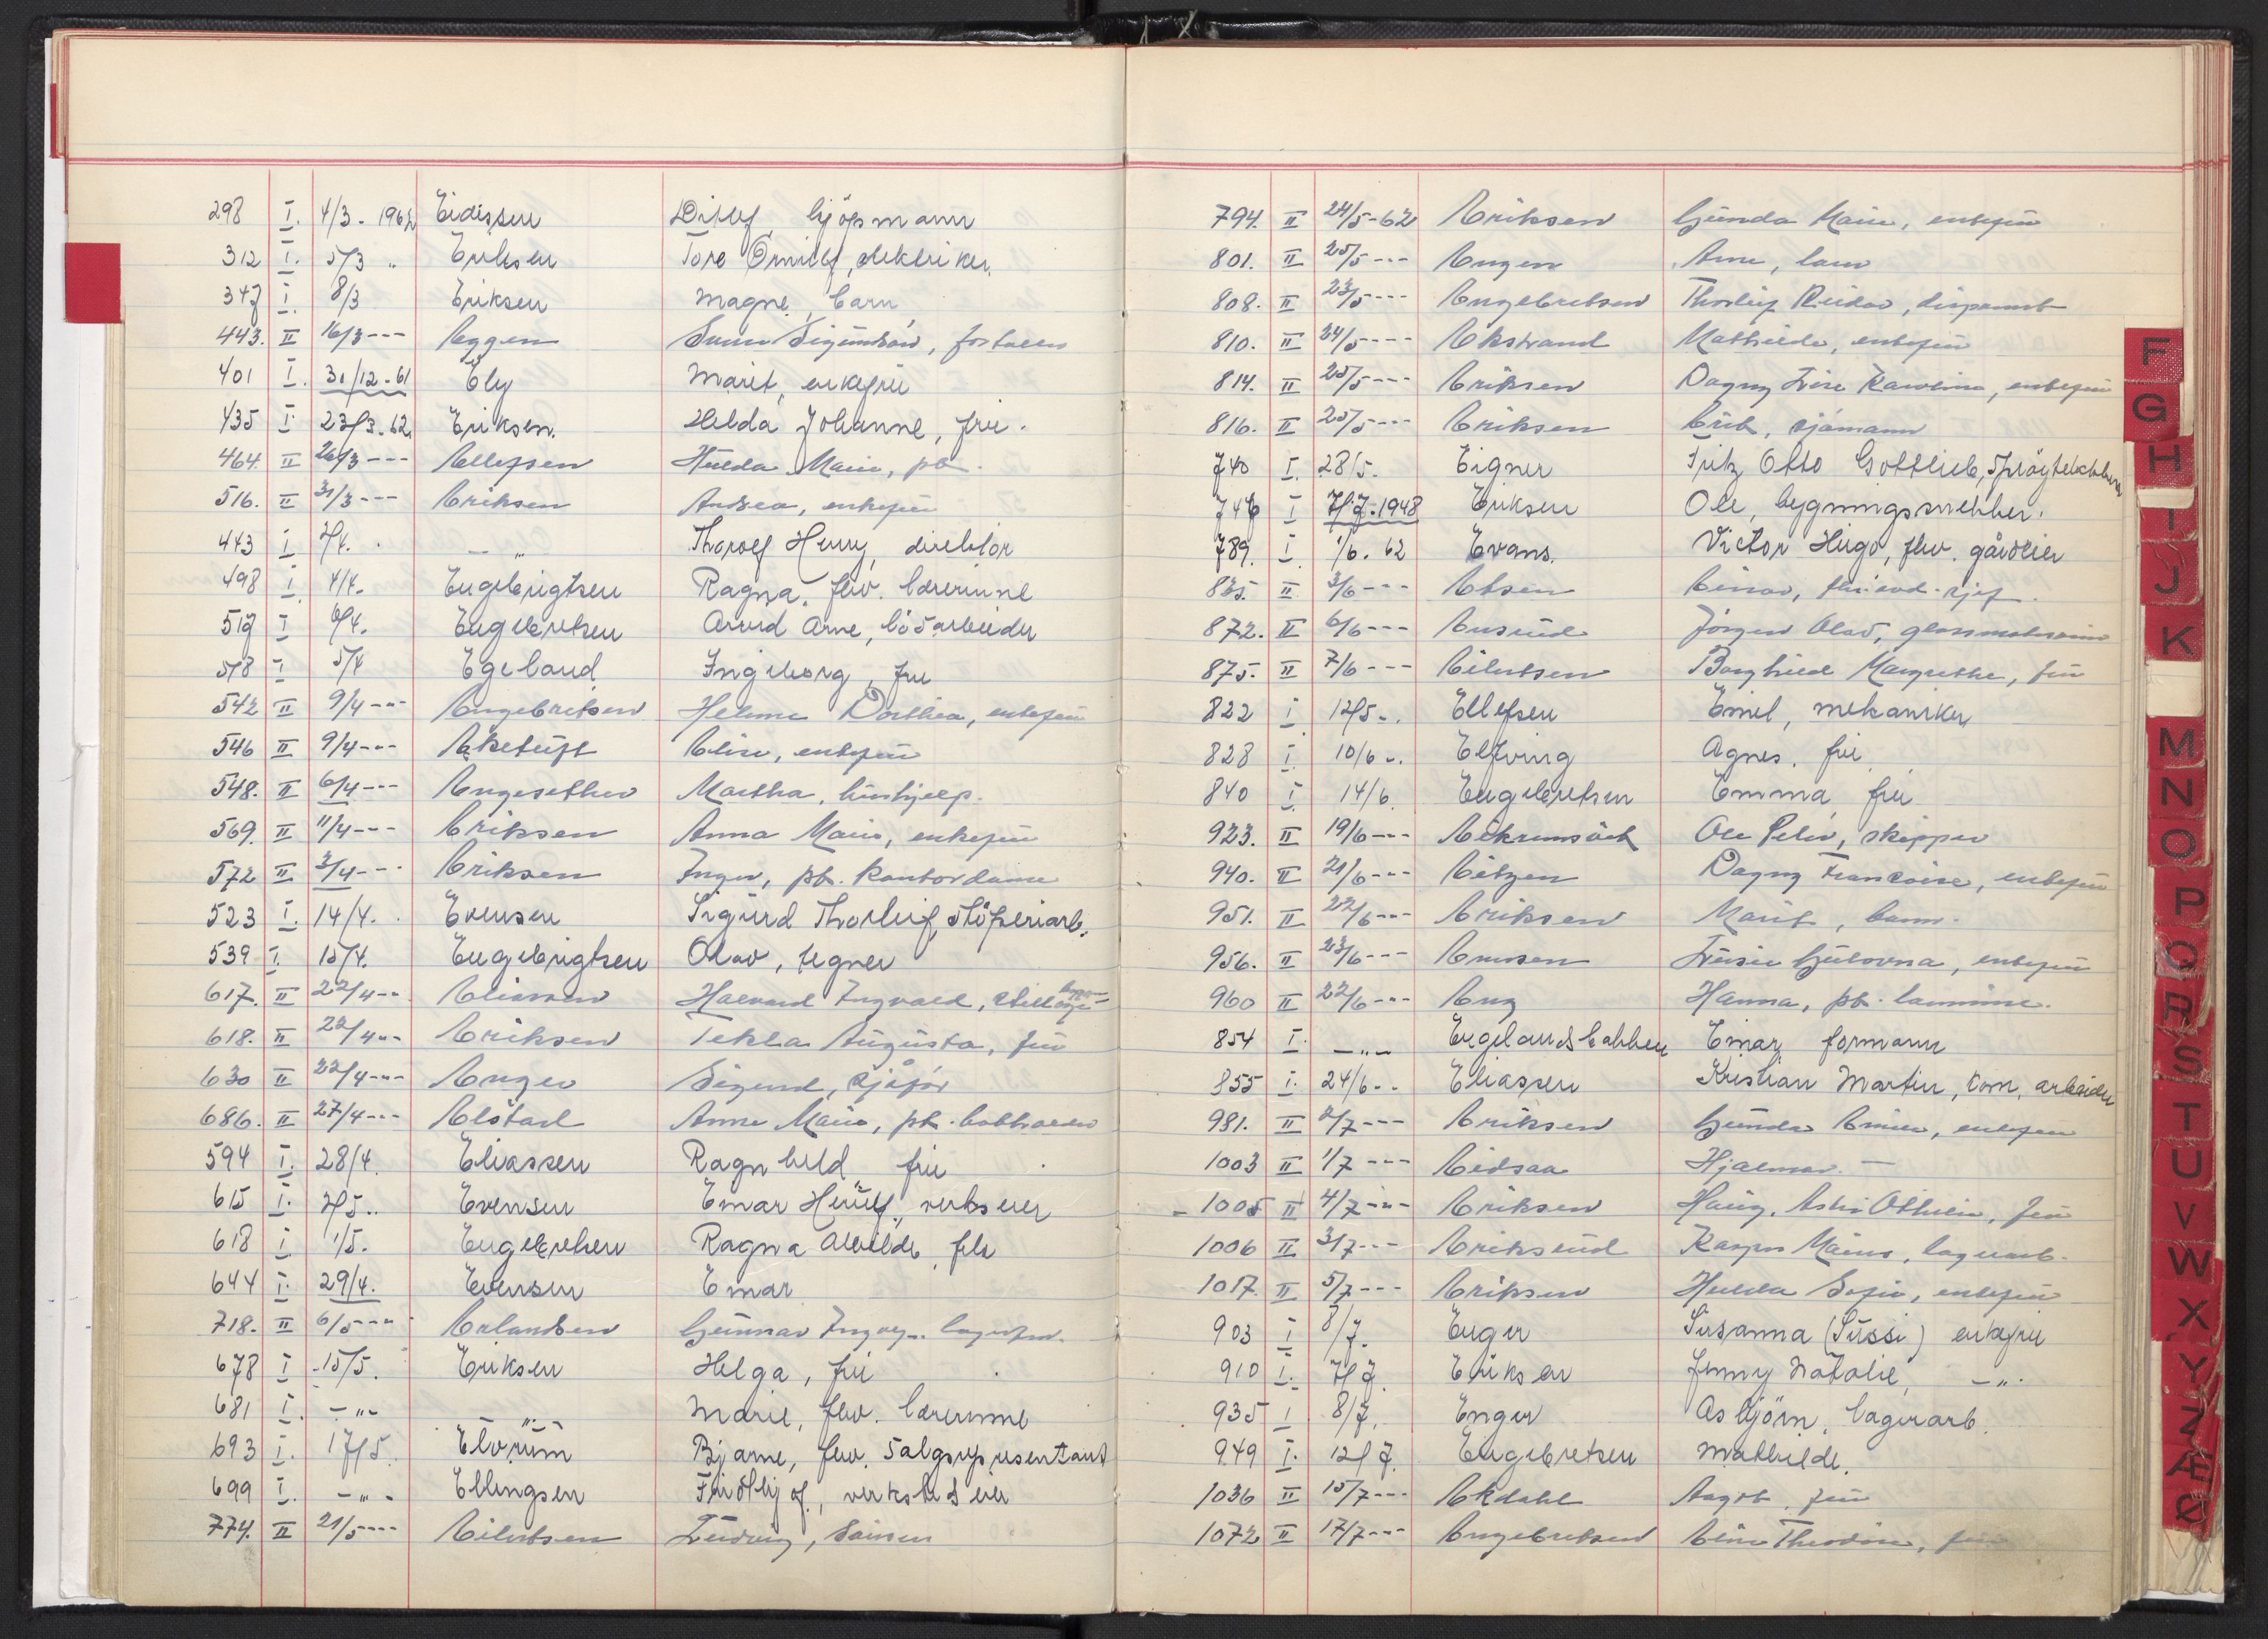 298 I. 4/3 - 1962 Eidissen Ditlef, kjöpmann
312 I. 5/3 " Eriksen Tore Örnulf, elektriker
347 I. 8/3 Eriksen Magne, barn
443. II 16/3 --- Eggen
401 I. 31/12 - 61 Ely Marit, enkefru
435 I. 23/3 - 62 Eriksen. Helda Johanne, fru.
464. II 26/3 --- Ellefsen Hulda Marie, pb.
516. II 31/3 --- Eriksen Andrea, enkefru
443 I 2/4. — " — Thorolf Henry, direktör
498 I. 4/4. Engebrigtsen Ragna, fhv. lærerinne
517 I 6/4. Engebretsen Arvid Arne, lösarbeider
518 I 5/4 Egeland Ingeborg, fru
542 II 9/4 --- Engebretsen Helene Dorthea, enkefru
546 II 9/4 --- Eketuft Elise, enkefru
548. II 6/4 --- Engesether Martha, hushjelp.
569. II 11/4 --- Eriksen Anna Marie, enkefru
572 II 3/4 --- Eriksen Inger, pb. kontordame
523 I. 14/4. Evensen Sigurd Thorleif, stöperiarb.
539 I. 15/4. Engebrigtsen Olav, tegner
617. II 22/4 -- Eliassen Halvard Ingvald,
618. II 22/4 --- Eriksen Tekla Augusta, fru
630 II 22/4 --- Enger Sigurd, sjåför
686. II 27/4 --- Elstad Anne Marie, pb.
594 I. 28/4. Eliassen Ragnhild fru
615 I. 2/5.. Evensen Einar Herulf, verkseier
618 I. 1/5. Engebretsen Ragna Alvilde, fru
644 I. 29/4. Evensen Einar
718. II 6/5 --- Erlandsen Gunnar
678 I -15/5. Eriksen Helga, fru
681 I. - " - — " — Marie, fhv. lærerinne
693 I. 17/5 Elvrum Bjarne, fhv. salgsrepresentant
699 I. - " - Ellingsen Fridtjof, verkstedeier
774. II 21/5 ---- Eilertsen Ludvig,
794. II 24/5 - 62 Eriksen Gunda Marie, enkefru
801. II 25/5 --- Engen Arne,
808. II 23/5 ---- Engebretsen Thorleif Reidar, disponent
810. II 24/5 ---- Ekstrand Mathilde, enkefru
814. II 25/5 --- Eriksen Dagny Lise Karoline, enkefru
816. II 25/5 --- Eriksen Erik, sjömann
740 I. 28/5. Eigner Fritz Otto Gottlieb,
746 I 7/7. 1948 Eriksen Ole, bygningssnekker.
789. I. 1/6. 62 Evans. Victor Hugo, fhv. gårdeier
835. II 3/6 --- Einar,
872. II 6/6 --- Jörgen Olav,
875. II 7/6 --- Eilertsen Borghild Margrethe, fru
822 I 12/5 -. Ellefsen Emil, mekaniker
828 I. 10/6 -. Elfving Agnes, fru
840 I. 14/6. Engebretsen Emma, fru
923. II 19/6 --- Ole Peder, skipper
940. II 21/6 --- Eitzen Dagny Francoise, enkefru
951. II 22/6 --- Eriksen Marit, barn.
956. II 23/6 --- enkefru
960 II 22/6 --- Eng Hanna, pb.
854 I. — " — Engelandsbakken Einar formann
855 I. 24/6 -. Eliassen Kristian Martin, kom. arbeider
981. II 2/7 --- Eriksen Gunda Emilie, enkefru
1003 II 1/7 --- Eidsaa Hjalmar. —
1005 II 4/7 --- Eriksen fru
1006 II 3/7 --- Eriksrud lagerarb.
1017. II 5/7 --- Eriksen Hulda Sofie, enkefru
903 I 8/7. Enger Susanna (Sussi) enkefru
910 I. 7/7. Eriksen Jenny Natalie, — " -
935 I 8/7. Enger Asbjörn, lagerarb.
949 I. 12/7. Engebretsen Mathilde.
1036 II 15/7 --- Ekdahl Aagot, fru
1072 II 17/7 --- Engebretsen Theodine, fru
F
G
H
I
J
K
M
N
O
P
Q
R
S
T
U
V
W
X
Y
Z
Æ
Ø